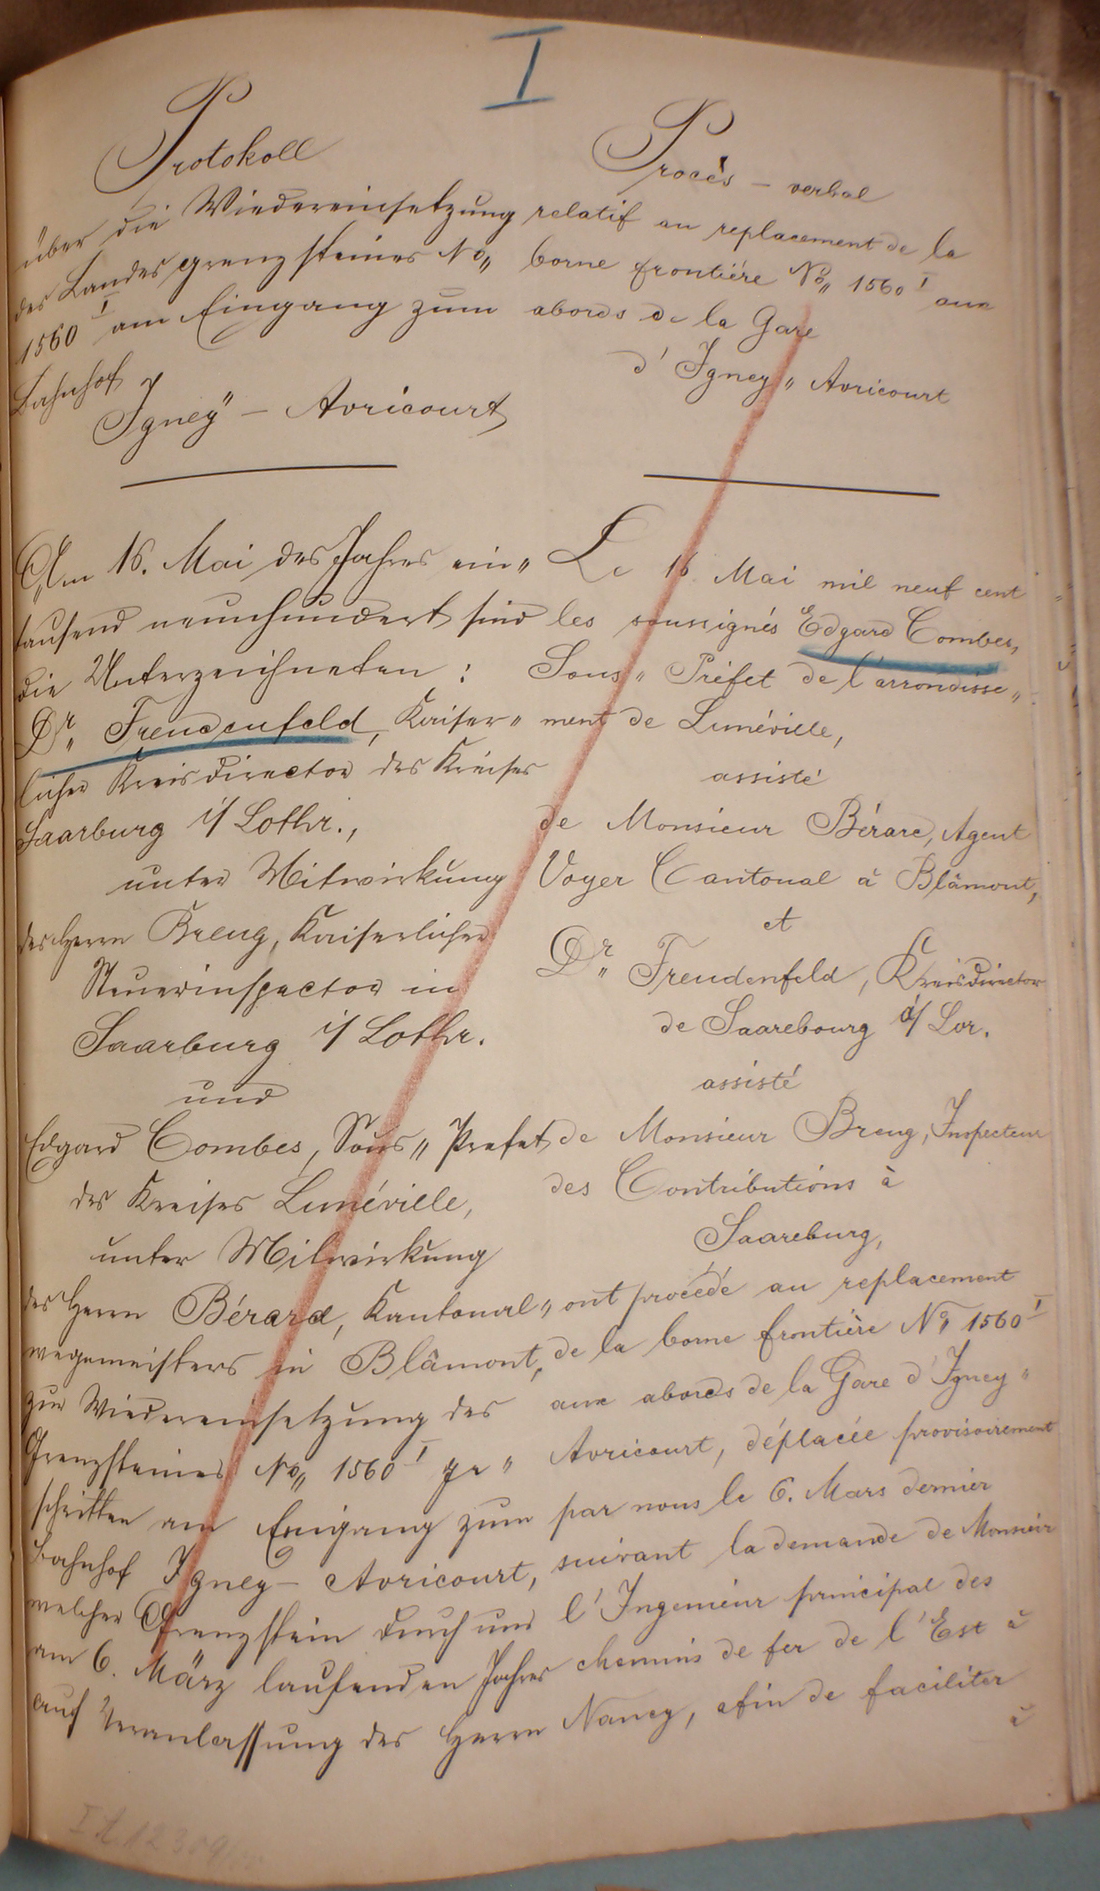 I
Protokoll
über die Wiedereinsetzung
des Landesgrenzsteines No„
1560 I am Eingang zum
Bahnhof
Igney" – Avricourt
Am 16. Mai des Jahres ein„
tausend neunhundert sind
die Unterzeichneten :
Dr„ Freudenfeld, Kaiser„
licher Kreisdirector des Kreises
Saarburg i/ Lothr.,
unter Mitwirkung
des Herrn Breug, Kaiserlicher
Steuerinspector in
Saarburg i/ Lothr.
und
Edgard Combes, Sous„ Prefet
des Kreises Lunéville,
unter Mitwirkung
des Herrn Bérard, Kantonal„
wegemeisters in Blâmont,
zur Wiedereinsetzung des
Grenzsteines No„ 1560 I ge„
schritten am Eingang zum
Bahnhof Igney – Avricourt,
welcher Grenzstein durch uns
am 6. März laufenden Jahres
auf Veranlassung des Herrn
Procès – verbal
relatif au replacement de la
borne frontière No„ 1560 I aux
abords de la Gare
d' Igney „ Avricourt
Le 16 Mai mil neuf cent
les soussignés Edgard Combes,
Sous „ Préfet de l'arrondisse„
ment de Lunéville,
assisté
de Monsieur Bérard, Agent
Voyer Cantonal à Blâmont,
et
Dr„ Freudenfeld, Kreisdirector
de Saarebourg a/ Lor.
assisté
de Monsieur Breug, Inspecteur
des Contributions à
Saareburg,
ont procédé au replacement
de la borne frontière No„ 1560 I
aux abords de la Gare d' Igney „
Avricourt, déplacée provisoirement
par nous le 6. Mars dernier
suivant la demande de Monsieur
l' Ingenieur principal des
chemins de fer de l' Est à
Nancy, afin de faciliter
à